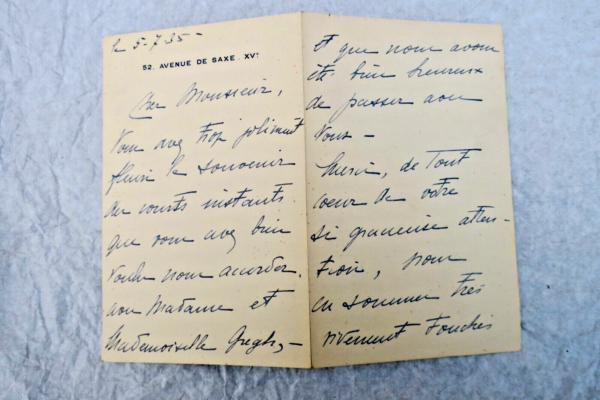 le 5-7-35-
52. AVENUE DE SAXE. XVᵉ
Cher Monsieur,
Vous avez trop joliment
fleuri le souvenir
des courts instants
que vous avez bien
voulu nous accorder,
avec Madame et
Mademoiselle Gregh,-
Et que nous avons
été bien heureux
de passer avec
vous -
Merci, de tout
coeur de votre
si gracieuse atten-
tion, nous
en sommes très
vivement touchés